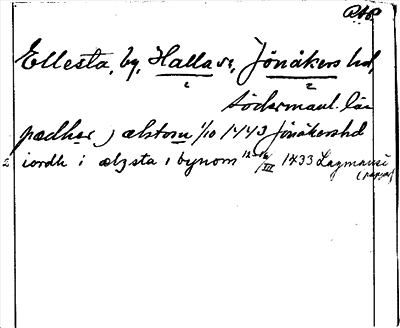 Ellesta, by, Halla sn, Jönåkers hd,
Södermanl. län
pædhar j ælstom 1/10 1443 Jönåkershd
2 iordh i ælgsta i bynom 12-16/III 1433 Lagmansö
(papper)